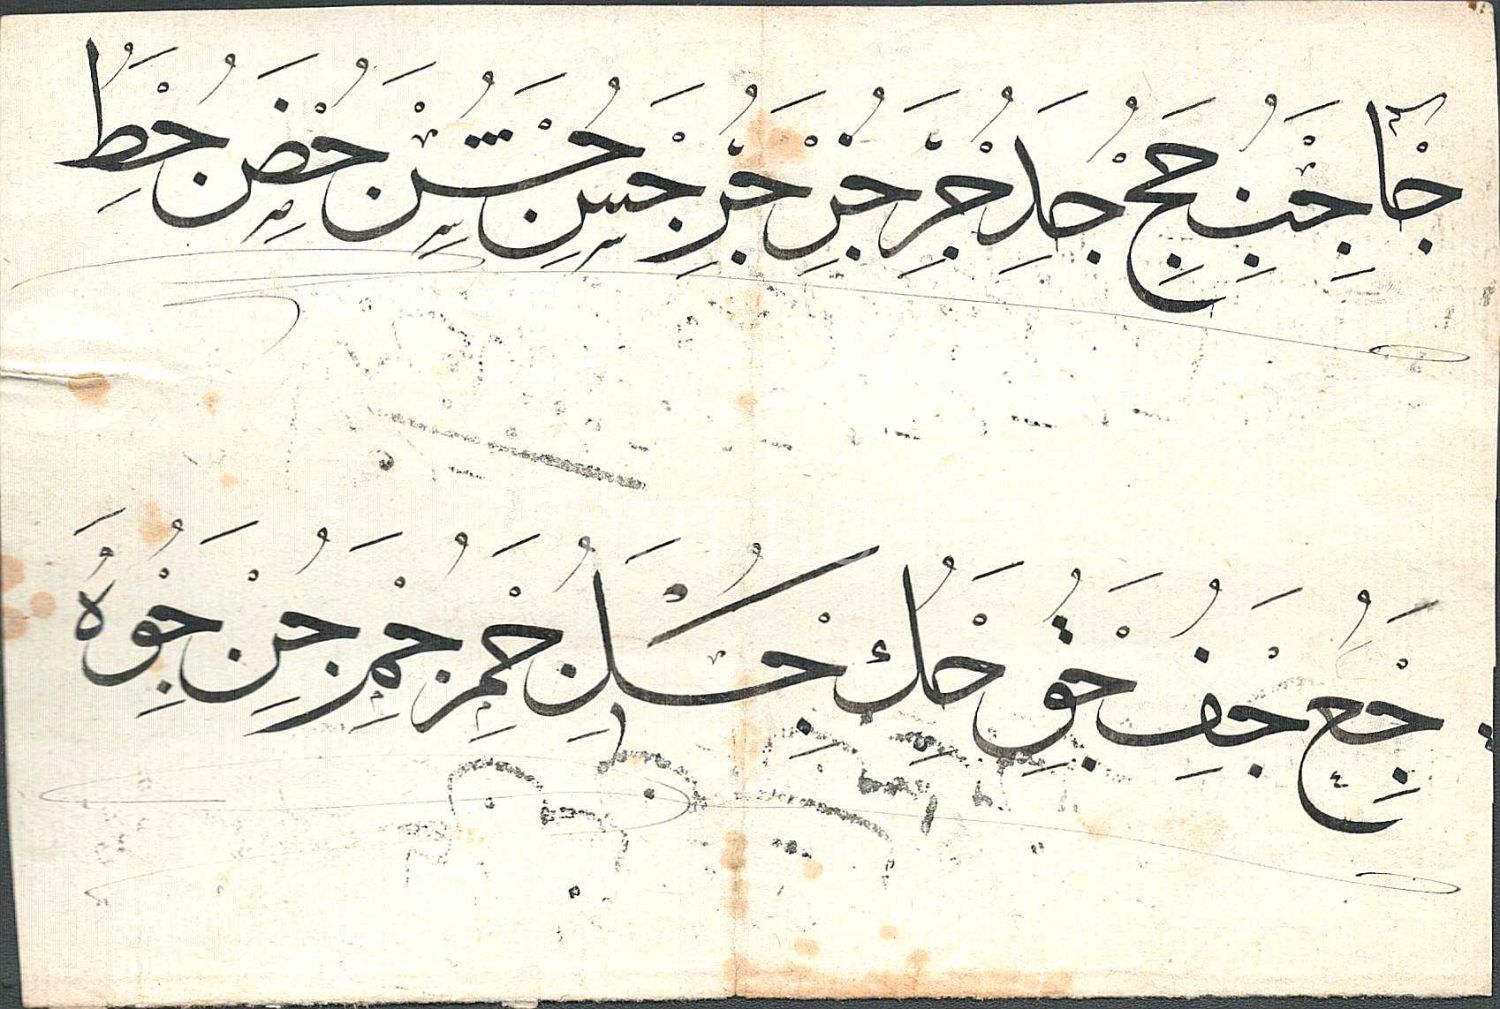 جا جب جج جد جر جر جر جس جش جض جط
جع جف جق جك جكل جم جم جن جو ه